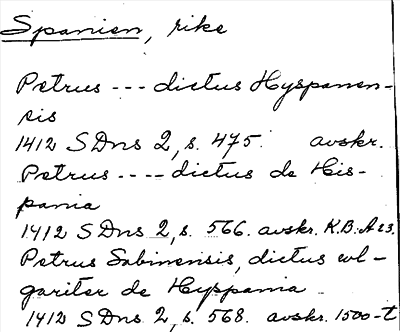 Spanien, rike
Petrus --- dictus Hyspanen-
sis
1412 SDns 2, s. 475. avskr.
Petrus ---- dictus de His-
pania
1412 SDns 2, s. 566. avskr. K.B. A 23.
Petrus Sabinensis, dictus vul-
gariter de Hyspania
1412 SDns 2, s. 568. avskr. 1500-t